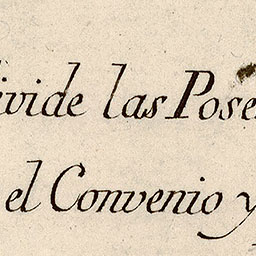 ivide las Pose
el Convenio y